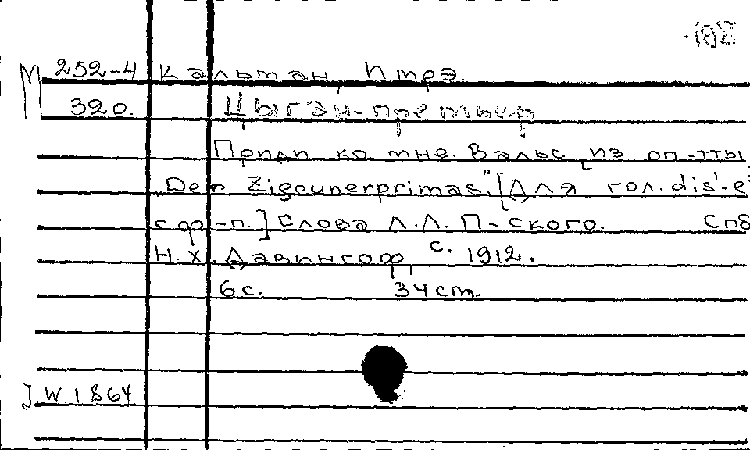 102
М 252-4 Кальман, Имрэ
320. Цыган-премьер
Приди ко мне. Вальс [из оп-тты
"Der Zigeunerprimas". [Для гол. dis'-e'
с ф-п.] Слова Л.Л. П-ского. Спб
Н. Х. Давингоф с. 1912.
6 с. 34 cm
J W 1864